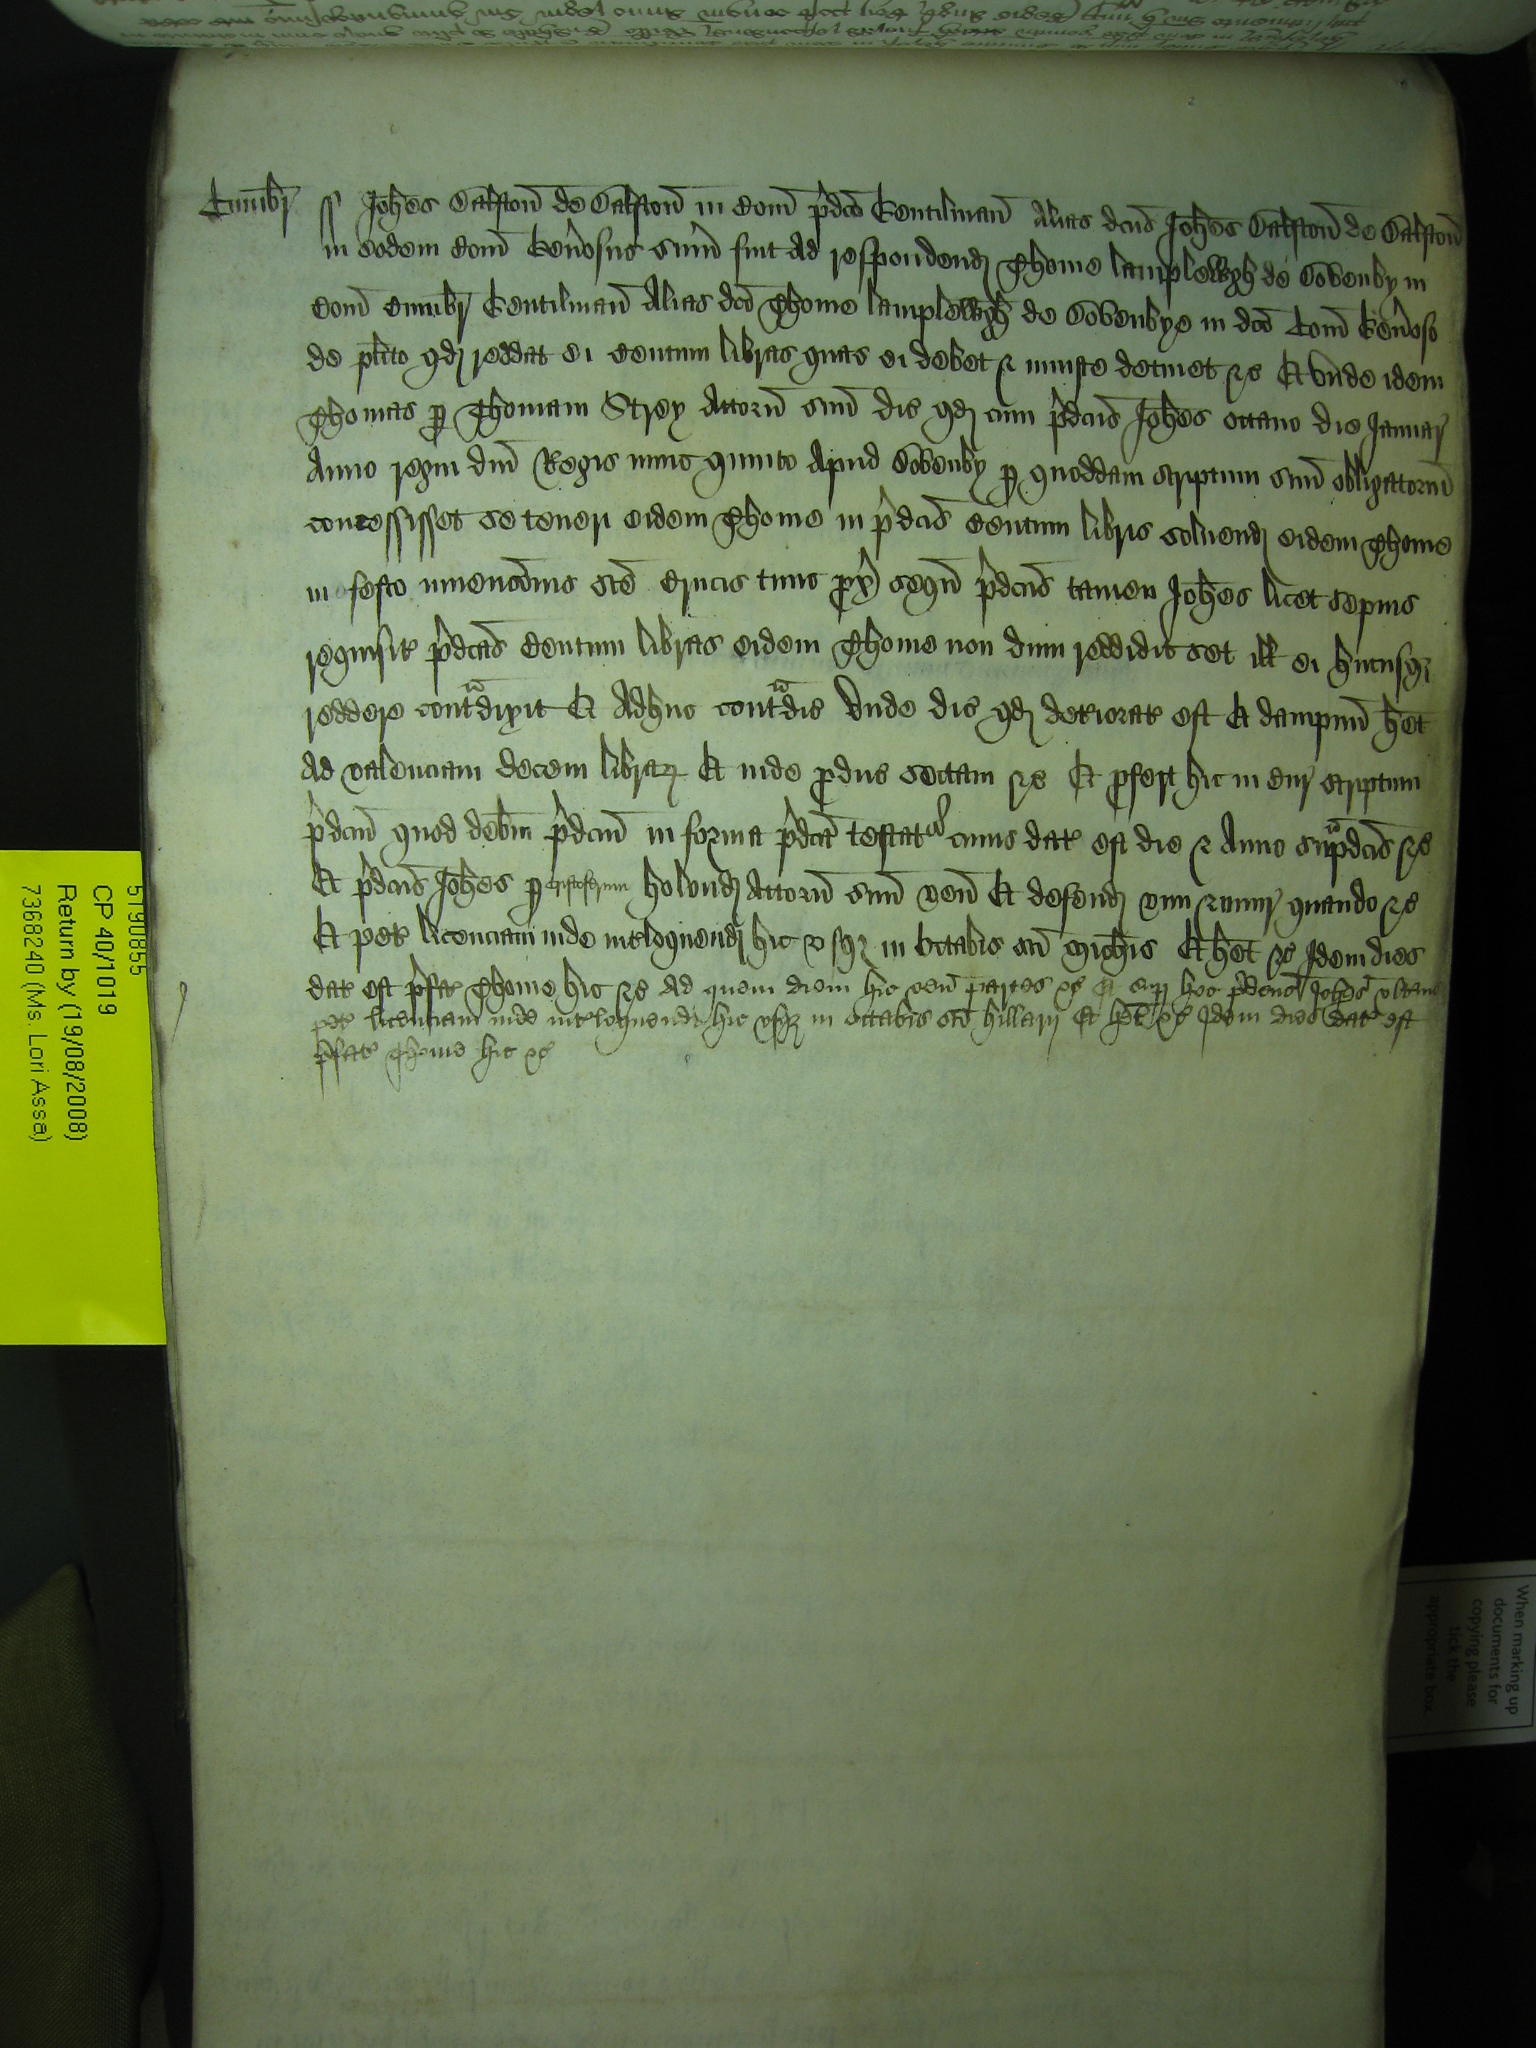 Cumbr ss Joh̃es Dalston̄ de Dalston̄ in Com̃ p̃dc̃o Gentilman̄ Alias dc̃us Joh̃es Dalston̄ de Dalston̄
in eodem Com̃ Gen̄osus sum̄ fuit ad respondend Thome lamplewgh de Dovenby in
Com̃ Cumbr Gentilman̄ Alias dc̃o Thome lamplewgh de Dovenbye in dc̃o Com̃ Gen̄oso
de pl̃ito qd reddat ei Centum libras quas ei debet & iniuste detinet &c Et unde idem
Thomas p Thomam Strey Attorn̄ suū dic qd cum p̃dc̃us Joh̃es octavo die Januar
Anno regni dn̄i Regis nunc quinto Apud Dovenby p quoddam scriptum suū obligatoriū
concessisset se teneri eidem Thome in p̃dc̃is Centum libris solvend eidem Thome
in festo invencōnis sc̃e Crucis tunc px̃ sequn̄ p̃dc̃us tamen Joh̃es licet sepius
requisit p̃dc̃as Centum libras eidem Thome non dum reddidit set ill ei hucusq
reddere contᵃdixit Et Adhuc contᵃdic Unde dic qd deteriorat est Et dampnū h̃et
ad valenciam decem librar Et inde pduc sectam &c Et pfert hic in Cur scriptum
p̃dc̃um quod deb̃m p̃dc̃um in forma p̃dc̃a testatʳ cuius dat est die & Anno supᵃdc̃is &c
Et p̃dc̃us Joh̃es p cristoferum Attorn̄ suū ven̄ Et defend vim & iniur quando &c
Et pet licenciam inde int̃loquend hic usq in Octabis sc̃i Mich̃is Et h̃et &c Idem dies
dat est p̃fat Thome hic &c Ad quem diem hic ven̄ partes &c Et sup hoc p̃dc̃us Joh̃es
pet licenciam inde int̃loquend hic usq in octabis sc̃i hillarij Et h̃et &c Idem dies dat est
p̃fat Thome hic &c
5790855
CP 40/1019
Return by (19/08/2008)
7368240 (Ms. Lori Assa)
When marking up
documents for
copying please
tick the
appropriate box